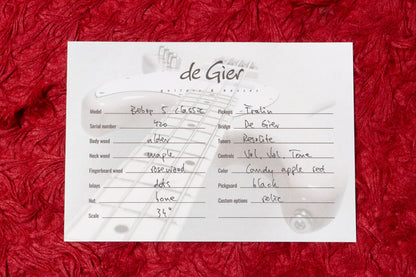 de Gier
guitars & basses
Model Bebop 5 classic
Serial number 420
Body wood alder
Neck wood maple
Fingerboard wood rosewood
Inlays dots
Nut bone
Scale 34"
Pickups Fralin
Bridge De Gier
Tuners Resolite
Controls Vol. Vol. Tone
Color Candy apple red
Pickguard black
Custom options relic